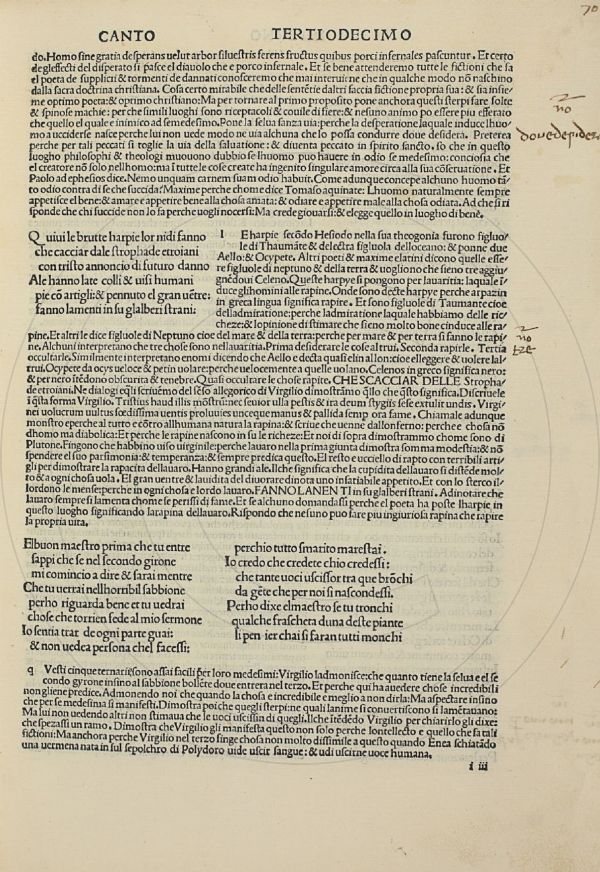 70
CANTO TERTIODECIMO
do. Homo sine gratia desperans uelut arbor siluestris ferens fructus quibus porci infernales pascuntur. Et certo
de glessecti del disperato si pasce el diauolo che e porco infernale. Et se bene attenderemo tutte le fictioni che fa
el poeta de supplicii & tormenti de dannati conosceremo che mai interuirne che in qualche modo nō naschino
dalla sacra doctrina christiana. Cosa certo mirabile che delle sentētie daltri faccia fictione propria sua: & sia insie/
me optimo poeta: & optimo christiano: Ma per tornare al primo proposito pone anchora questi sterpi fare folte
& spinose machie: perche simili luoghi sono riceptacoli & couile di fiere: & nesuno animo po essere piu efferato
che quello el quale e inimico ad semedesimo. Pone la selua sanza uia: perche la desperatione laquale induce lhuo/
mo a ucciderse nasce perche lui non uede modo ne uia alchuna che lo possa condurre doue desidera. Preterea
perche per tali peccati si toglie la uia della saluatione: & diuenta peccato in spirito sancto. so che in questo
luogho philosophi & theologi muouono dubbio se lhuomo puo hauere in odio se medesimo: conciosia che
el creatore nō solo nellhomo: ma i tutte le cose create ha ingenito singulare amore circa alla sua cōseruatione. Et
Paolo ad ephesios dice. Nemo unquam carnem suam odio habuit. Come adunque concepe alchuno huomo tā/
to odio contra di se che succida? Maxime perche chome dice Tomaso aquinate: Lhuomo naturalmente sempre
appetisce el bene: & amare e appetire bene alla chosa amata: & odiare e appetire male alla chosa odiata. Ad che si ri
sponde che chi succide non lo fa perche uogli nocersi: Ma crede giouarsi: & elegge quello in luogho di benē.
no
Quiui le brutte harpie lor nidi fanno
che cacciar dale strophade etroiani
con tristo annoncio di futuro danno
Ale hanno late colli & uisi humani
pie cō artigli: & pennuto el gran uētre:
fanno lamenti in su glalberi strani:
I E harpie secōdo Hesiodo nella sua theogonia furono figluo/
le di Thaumāte & delectra figluola delloceano: & ponne due
Aello: & Ocypete. Altri poeti & maxime elatini dicono quelle esse
re figluole di neptuno & della terra & uogliono che sieno tre aggiu/
gnēdoui Celeno. Queste harpye si pongono per lauaritia: laquale i/
duce glihomini alle rapine. Onde sono decte harpye perche arpazin
in greca lingua significa rapire. Et sono figluole di Taumante cioe
delladmiratione: perche ladmiratione laquale habbiamo delle ric/
cheze: & lopinione di stimare che sieno molto bone cinduce alle ra/
pine. Et altri le dice figluole di Neptuno cioe del mare & della terra: perche per mare & per terra si fanno le rapi/
ne. Alchuni interpretano che tre chose sono nellauaritia. Prima desiderare le cose altrui. Seconda rapirle. Tertia
occultarle. Similmente interpretano enomi dicendo che Aello e decta quasi elin allon: cioe elleggere & uolere lal/
trui. Ocypete da ocys ueloce & petin uolare: perche uelocemente a quelle uolano. Celenos in greco significa nero:
& per nero stēdono obscurita & tenebre. Quasi occultare le chose rapite. CHE SCACCIAR DELLE Stropha/
de etroiani. Ne dialogi q̄li scriuēmo del sēso allegorico di Virgilio dimostrāmo q̄llo che q̄sto significa. Discriuele
i q̄sta forma Virgilio. Tristius haud illis mōstrum: nec seuior ulla pestis & ira deum stygiis sese extulit undis. Virgi/
nei uolucrum uultus fœdissima uentris proluuies unceque manus & pallida semp ora fame. Chiamale adunque
monstro eperche al tutto e cōtro allhumana natura la rapina: & scriue che uenne dallonferno: perche e chosa nō
dhomo ma diabolica: Et perche le rapine nascono in su le richeze: Et noi di sopra dimostrammo chome sono di
Plutone. Fingono che habbino uiso uirginile: perche lauaro nella prima giunta dimostra somma modestia: & nō
spendere el suo parsimonia: & temperanza: & sempre predica questo. El resto e uccielo di rapto con terribili arti/
gli per dimostrare la rapacita dellauaro. Hanno grandi ale. Ilche significa che la cupidita dellauaro si distēde mol/
to & a ogni chosa uola. El gran uentre & lauidita del diuorare dinota uno insatiabile appetito. Et con lo sterco il/
lordono le mense: perche in ogni chosa e lordo lauaro. FANNO LANENTI in su glalberi strani. Adinotare che
lauaro sempre si lamenta chome se perissi di fame. Et se alchuno domandassi perche el poeta ha poste lharpie in
questo luogho significando larapina dellauaro. Rispondo che nesuno puo fare piu ingiuriosa rapina che rapire
la propria uita.
no
Elbuon maestro prima che tu entre
sappi che se nel secondo girone
mi comincio a dire & sarai mentre
Che tu uerrai nellhorribil sabbione
perho riguarda bene et tu uedrai
chose che torrien fede al mio sermone
Io sentia trar de ogni parte guai:
& non uedea persona chel facessi:
perchio tutto smarito marestai.
Io credo che credete chio credessi:
che tante uoci uscissor tra que brōchi
da gēte che per noi si nascondessi.
Perho dixe elmaestro se tu tronchi
qualche frascheta duna deste piante
li pensier chai si faran tutti monchi
q Vesti cinque ternarii sono assai facili per loro medesimi: Virgilio ladmonisce: che quanto tiene la selua e el se
condo gyrone insino al sabbione bollēte doue entrera nel terzo. Et perche qui ha auedere chose incredibili
non gliene predice. Admonendo noi che quando la chosa e incredibile e meglio a non dirla: Ma aspectare insino
che per se medesima si manifesti. Dimostra poi che quegli sterpi: ne quali lanime si conuertiscono si lamētauano:
Ma lui non uedendo altri non stimaua che le uoci uscissin di quegli. Ilche itēdēdo Virgilio per chiarirlo gli dixe:
che spezassi un ramo. Dimostra che Virgilio gli manifesta questo non solo perche lontellecto e quello che fa tali
fictioni: Ma anchora perche Virgilio nel terzo finge chosa non molto dissimile a questo quando Enea schiātādo
una uermena nata in sul sepolchro di Polydoro uide uscir sangue: & udi uscirne uoce humana.
i iii